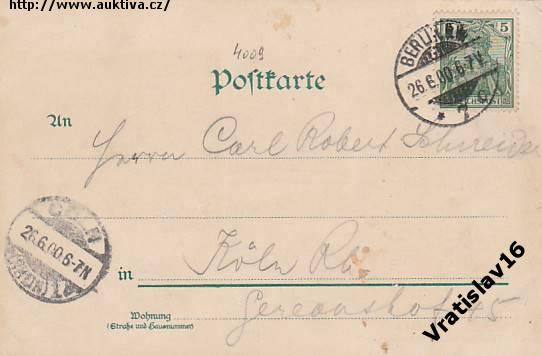 http://www.auktiva.cz/
4009
5
REICHSPOST
BERLIN
26.6.00.6-7N
* 7
Postkarte
An
Herrn Carl Robert Schneider
CÖLN
26.6.00.6-7N
in Köln Rh.
Gereonshof 45
Wohnung
(Straße und Hausnummer)
Vratislav16